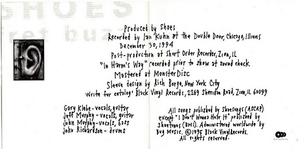 SHOES
fret buzz
Produced by Shoes
Recorded by Ian Kuhn at the Double Door, Chicago, Illinois
December 30, 1994
Post-production at Short Order Recorder, Zion, IL
"In Harm's Way" recorded prior to show at sound check.
Mastered at MonsterDisc
Sleeve design by Rich Borge, New York City
Write for catalog: Black Vinyl Records, 2269 Sheridan Road, Zion, IL 60099
Gary Klebe - vocals, guitar
Jeff Murphy - vocals, guitar
John Murphy - vocals, bass
John Richardson - drums
All songs published by Shoetunes (ASCAP)
except "I Don't Wanna Hear It" published by
Shoetunes (ASCAP). Administered worldwide by
Bug Music. ©1995 Black Vinyl Records.
All rights reserved.